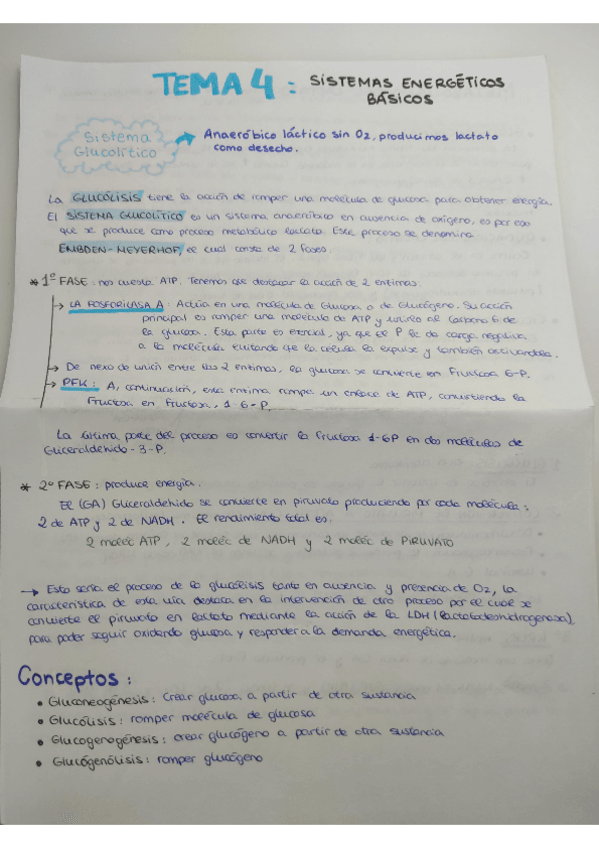 TEMA 4 : SISTEMAS ENERGÉTICOS
BÁSICOS
Sistema
Glucolítico
Anaeróbico láctico sin O2, producimos lactato
como desecho.
La GLUCÓLISIS tiene la acción de romper una molécula de glucosa para obtener energía.
El SISTEMA GLUCOLÍTICO es un sistema anaeróbico en ausencia de oxígeno, es por eso
que se produce como proceso metabólico lactato. Este proceso se denomina
EMBDEN-MEYERHOF, el cual consta de 2 fases.
* 1º FASE : nos cuesta ATP. Tenemos que destacar la acción de 2 enzimas.
→ LA FOSFORILASA A : Actúa en una molécula de Glucosa o de Glucógeno. Su acción
principal es romper una molécula de ATP y unirlo al Carbono 6 de
la glucosa. Esta parte es esencial, ya que el P le da carga negativa
a la molécula evitando que la célula la expulse y también activándola.
→ De nexo de unión entre las 2 enzimas, la glucosa se convierte en Fructosa 6-P.
→ PFK : A, continuación, esta enzima rompe un enlace de ATP, convirtiendo la
Fructosa en fructosa, 1-6-P.
La última parte del proceso es convertir la fructosa 1-6P en dos moléculas de
Gliceraldehído-3-P.
* 2º FASE : produce energía.
El (GA) Gliceraldehído se convierte en piruvato produciendo por cada molécula:
2 de ATP y 2 de NADH. El rendimiento total es.
2 moléc ATP, 2 moléc de NADH y 2 moléc de PIRUVATO
→ Esto sería el proceso de la glucólisis tanto en ausencia y presencia de O2, la
característica de esta vía destaca en la intervención de otro proceso por el cual se
convierte el piruvato en lactato mediante la acción de la LDH (lactatodeshidrogenasa)
para poder seguir oxidando glucosa y responder a la demanda energética.
Conceptos :
• Gluconeogénesis : Crear glucosa a partir de otra sustancia
• Glucólisis : romper molécula de glucosa
• Glucogenogénesis : crear glucógeno a partir de otra sustancia
• Glucógenólisis : romper glucógeno